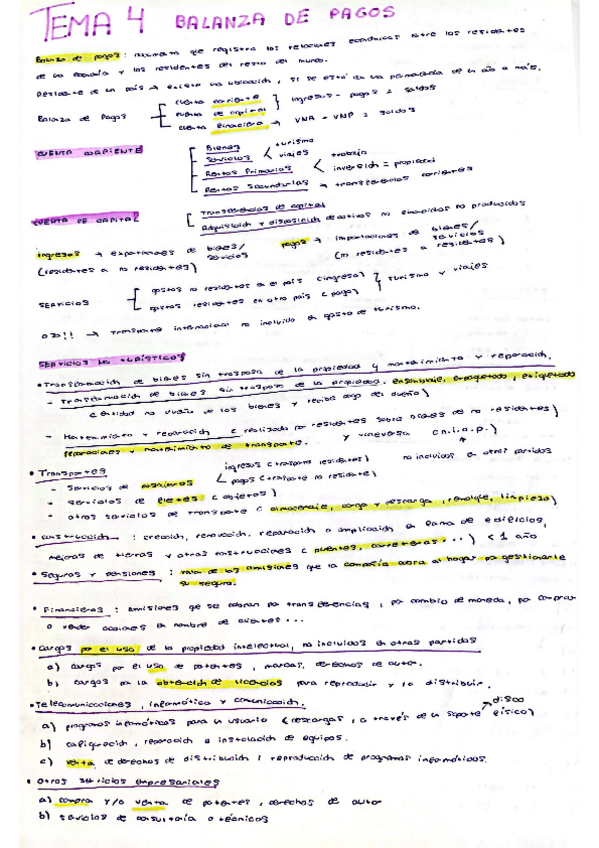 TEMA 4 BALANZA DE PAGOS
Balanza de pagos: documento que registra las relaciones económicas entre los residentes
de la economía y los residentes del resto del mundo.
Residente de un país → existe una ubicación, si se está en una más de un año o más.
Balanza de Pagos
cuenta corriente
cuenta de capital
ingresos - pagos = saldos
cuenta financiera → VNA - VNP = saldos
CUENTA CORRIENTE
Bienes
Servicios < turismo
viajes
Rentas Primarias < trabajo
inversión = propiedad
Rentas Secundarias → transferencias corrientes
CUENTA DE CAPITAL
Transferencias de capital
Adquisición y disposición de activos no financieros no producidos
ingresos → exportaciones de bienes/servicios
(residentes a no residentes)
pagos → importaciones de bienes/servicios
(no residentes a residentes)
SERVICIOS
gastos no residentes en el país (ingreso)
gastos residentes en otro país (pago)
turismo y viajes
OJO!! → Transporte internacional no incluido en gasto de turismo.
SERVICIOS NO TURÍSTICOS
• Transformación de bienes sin traspaso de la propiedad y mantenimiento y reparación.
- Transformación de bienes sin traspaso de la propiedad. ensamblaje, empaquetado, etiquetado
(entidad no dueña de los bienes y recibe pago del dueño)
- Mantenimiento y reparación (realizado por residentes sobre bienes de no residentes)
reparaciones y mantenimiento de transporte. y viceversa (n.i.o.p.)
no incluidos en otras partidas
• Transportes
ingresos (transporte residentes)
pagos (transporte no residente)
- Servicios de pasajeros
- servicios de fletes (objetos)
- otros servicios de transporte (almacenaje, carga y descarga, remolque, limpieza)
• construcción: creación, renovación, reparación o ampliación en forma de edificios,
mejoras de tierras y otras construcciones (puentes, carreteras...) < 1 año
• Seguros y pensiones: valor de las comisiones que la compañía cobra al hogar por gestionarle
su seguro.
• Financieros: comisiones que se cobran por transferencias, por cambio de moneda, por comprar
o vender acciones en nombre de clientes...
• Cargos por el uso de la propiedad intelectual, no incluidos en otras partidas
a) cargos por el uso de patentes, marcas, derechos de autor.
b) cargos por la obtención de licencias para reproducir y/o distribuir.
• Telecomunicaciones, informática y comunicación.
a) programas informáticos para un usuario (descargas, o a través de un soporte físico)
disco
b) configuración, reparación e instalación de equipos.
c) venta de derechos de distribución / reproducción de programas informáticos.
• Otros servicios empresariales
a) compra y/o venta de patentes, derechos de autor
b) servicios de consultoría o técnicos